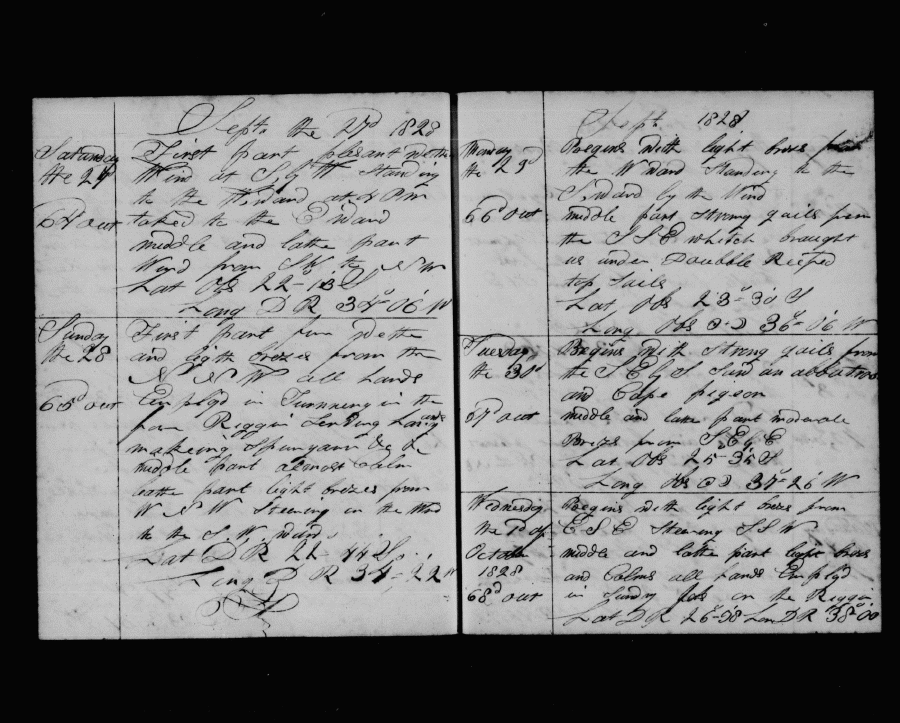 Septr the 27d 1828
Saturday
the 27d
64d out
First part plesant Wether
Wind at S by W standing
to the W.ward at 8 Pm
taked to the E ward
middle and latte part
Wind from SW the N W
Lat Obs 22-13 S
Long D R 34°-06 W
Sunday
the 28
65d out
First part fine Wether
and ligth brezes from the
N N W all hands
Employd in Turnneng in the
fore Riggin Sending
makeing Spunyarn &c &c
middle part almost Calm
latte part light brezes from
W N W Steering on the Wind
to the S.W. ward
Lat D R 22 44 S
Long D R 34-22 W
Sept 1828
Monday
the 29d
66d out
Begins With light brezes from
the N Ward Standeng to the
S.ward by the Wind
middle part strong gails from
the S S E which braught
us under Doubble Reefed
top Sails
Lat Obs 23°-30 S
Long Obs 36°-06 W
Tuesday
the 30d
67d out
Begins With Strong gails from
the S E by S
and Cape pigeon
middle and late part moderate
Brezs from S E by E
Lat Obs 25-35 S
Long Obs 37°-26 W
Wednesday
the 1d of
October
1828
68d out
Begins with light brezes from
E S E Steering S S W
middle and latte part light brezes
and Calms all hands Employd
in Sundry Jobs on the Riggin
Lat D R 26°-38 Lon D R 38°-00